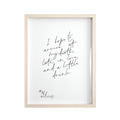 I hope to
arrive at
my death
late, in love
and a little
drunk